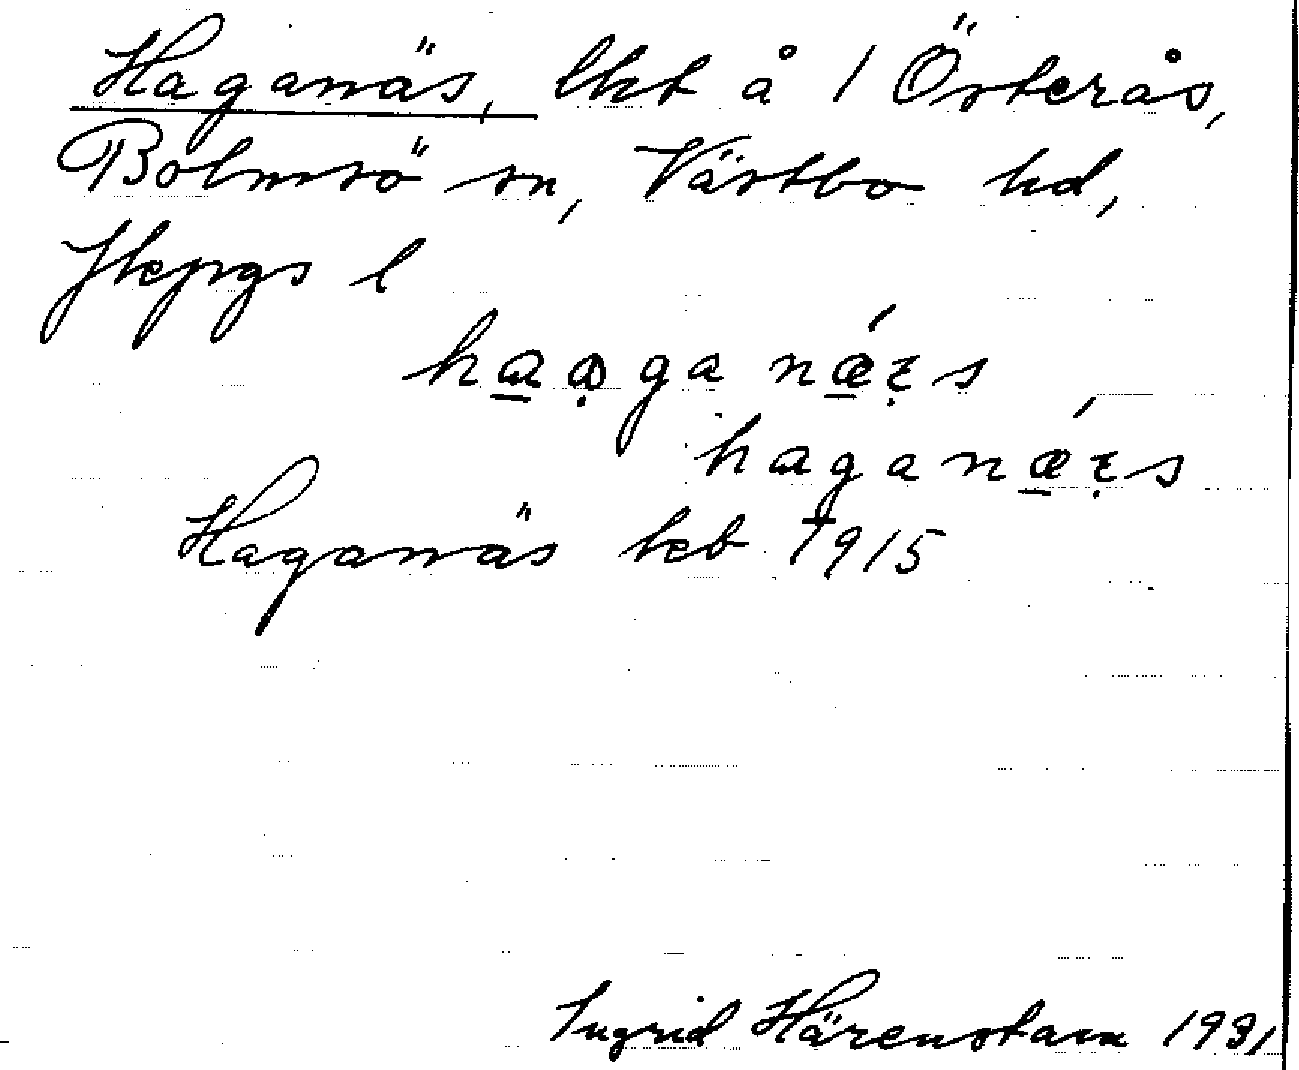 Haganäs, lht å 1 Österås,
Bolmsö sn, Västbo hd,
Jkpgs l
haaganǽɛs
haganǽɛs
Haganäs keb 1915
Ingrid Härenstam 1931